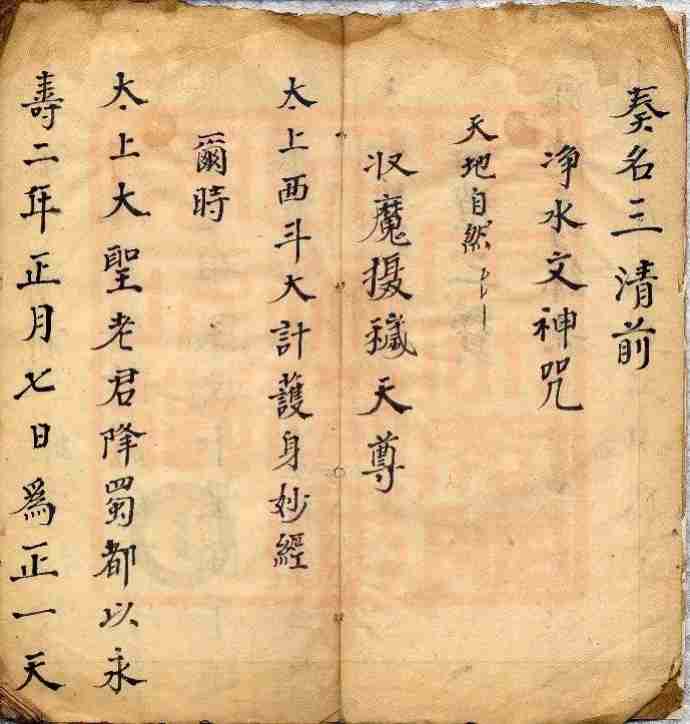 奏名三清前
净水文神咒
天地自然
収魔摄穢天尊
太上西斗大計護身妙經
爾時
太上大聖老君降蜀都以永
壽二年正月七日爲正一天